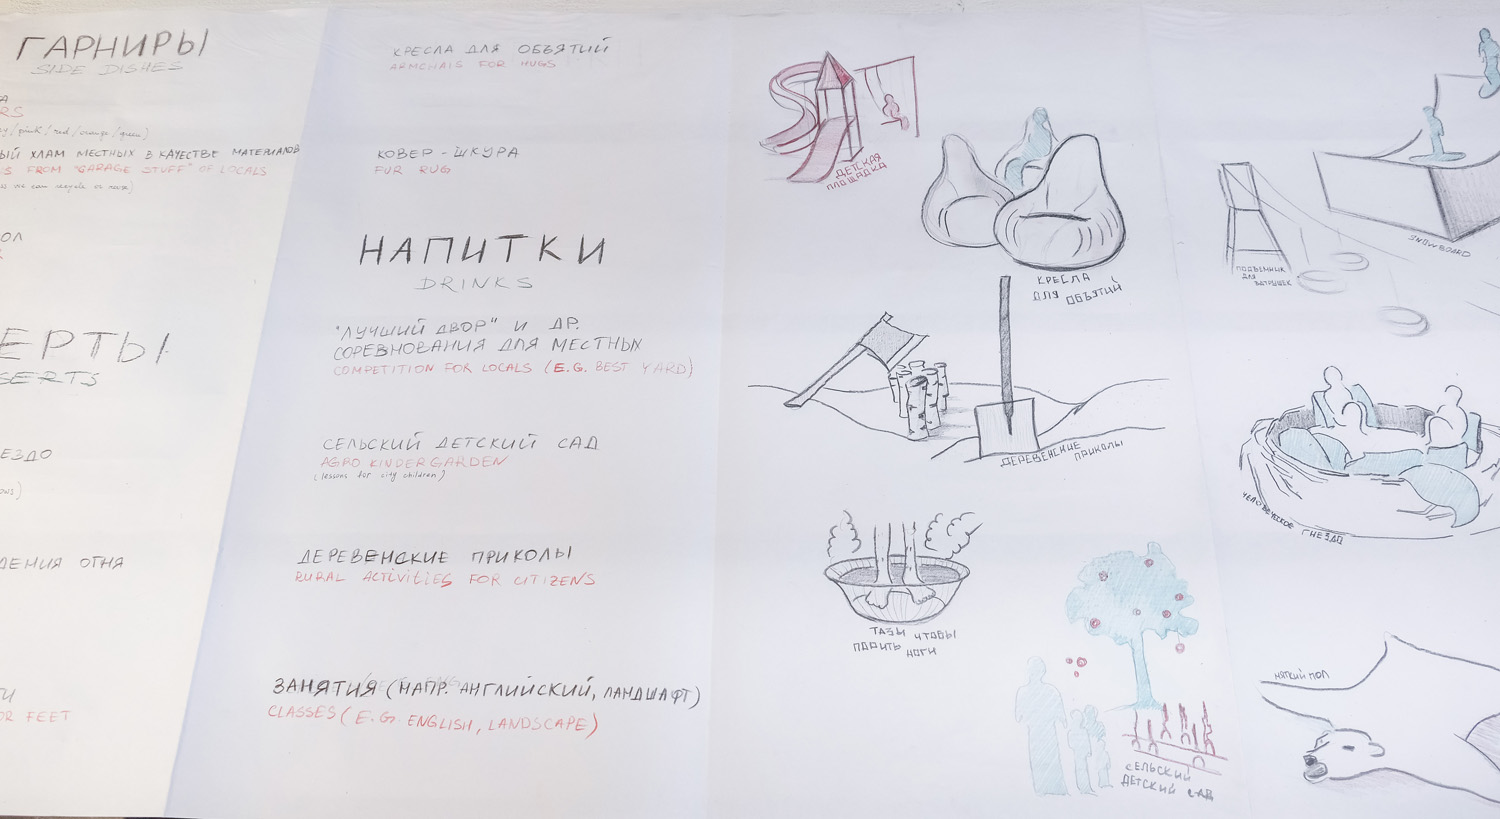 ГАРНИРЫ
SIDE DISHES
/pink/red/orange/green)
ХЛАМ МЕСТНЫХ В КАЧЕСТВЕ МАТЕРИАЛОВ
FROM "GARAGE STUFF" OF LOCALS
we can recycle or reuse)
ЕРТЫ
SERTS
ЕЗДО
ОГНЯ
FEET
КРЕСЛА ДЛЯ ОБЪЯТИЙ
ARMCHAIS FOR HUGS
КОВЕР - ШКУРА
FUR RUG
НАПИТКИ
DRINKS
"ЛУЧШИЙ ДВОР" И ДР.
СОРЕВНОВАНИЯ ДЛЯ МЕСТНЫХ
COMPETITION FOR LOCALS (E.G. BEST YARD)
СЕЛЬСКИЙ ДЕТСКИЙ САД
AGRO KINDERGARDEN
(lessons for city children)
ДЕРЕВЕНСКИЕ ПРИКОЛЫ
RURAL ACTIVITIES FOR CITIZENS
ЗАНЯТИЯ (НАПР. АНГЛИЙСКИЙ, ЛАНДШАФТ)
CLASSES (E.G. ENGLISH, LANDSCAPE)
ДЕТСКАЯ
ПЛОЩАДКА
КРЕСЛА
ДЛЯ ОБЪЯТИЙ
ДЕРЕВЕНСКИЕ ПРИКОЛЫ
ТАЗЫ ЧТОБЫ
ПАРИТЬ НОГИ
СЕЛЬСКИЙ
ДЕТСКИЙ САД
SNOWBOARD
ПОДЪЕМНИК
ДЛЯ
ВАТРУШЕК
ЧЕЛОВЕЧЕСКОЕ ГНЕЗДО
МЯГКИЙ ПОЛ